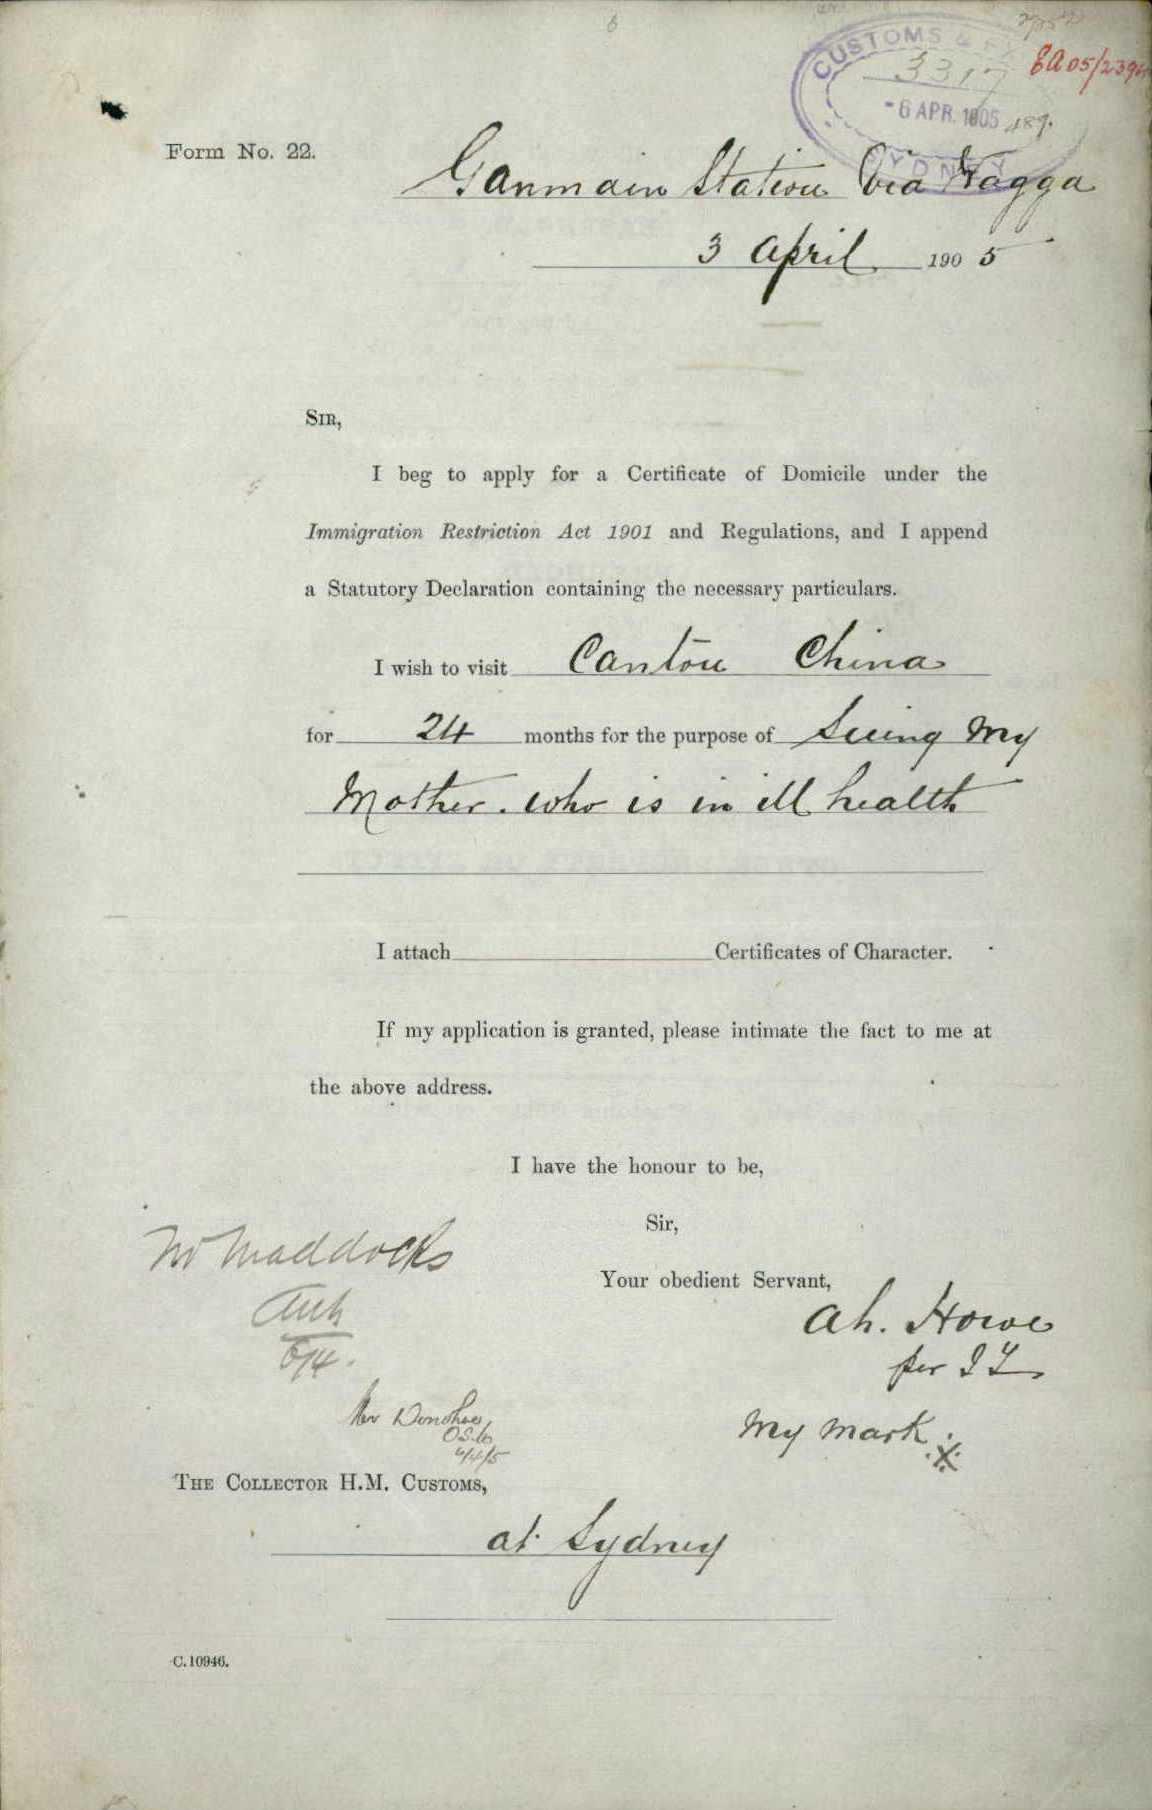 CUSTOMS & EX
3317
EA05/239
-6 APR. 1905
489.
SYDNEY
Form No. 22.
Ganmain Station Via Wagga
3 April 1905
SIR,
I beg to apply for a Certificate of Domicile under the
Immigration Restriction Act 1901 and Regulations, and I append
a Statutory Declaration containing the necessary particulars.
I wish to visit Canton China
for 24 months for the purpose of Seeing My
Mother. who is in ill health
I attach Certificates of Character.
If my application is granted, please intimate the fact to me at
the above address.
I have the honour to be,
Sir,
Your obedient Servant,
Ah. Howe
per
My Mark X
Mr Maddocks
6/4.
Mr Donohoe,
6/4/5
THE COLLECTOR H.M. CUSTOMS,
at Sydney
C.10946.